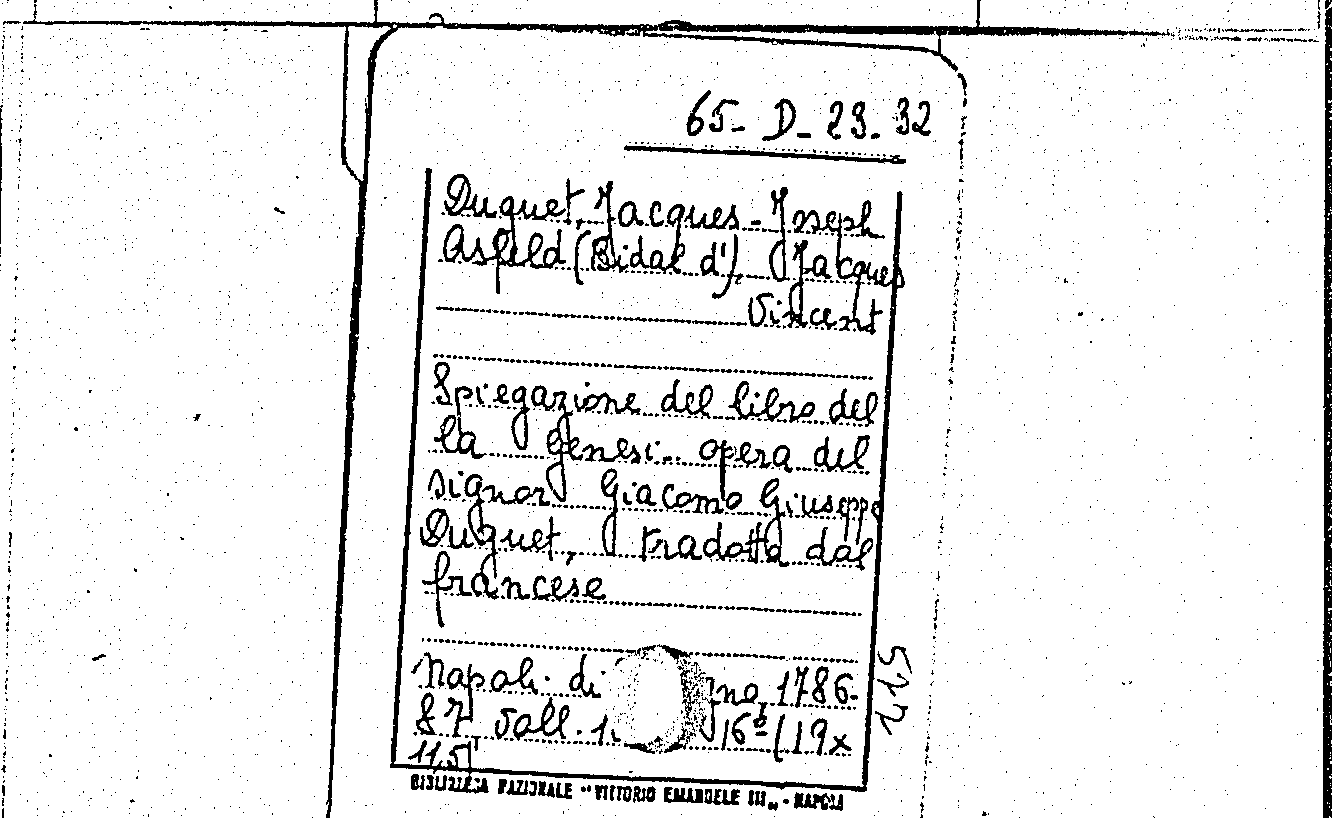 65- D- 23. 32
Duguet, Jacques-Joseph
Asfeld (Bidal d'), Jacques
Vincent
Spiegazione del libro del
la Genesi.. opera del
signor Giacomo Giuseppe
Duguet, tradotta dal
francese
Napoli. di 1786-
87 voll. 16° (19x
11,5)
522
BIBLIOTECA NAZIONALE "VITTORIO EMANUELE III„ - NAPOLI